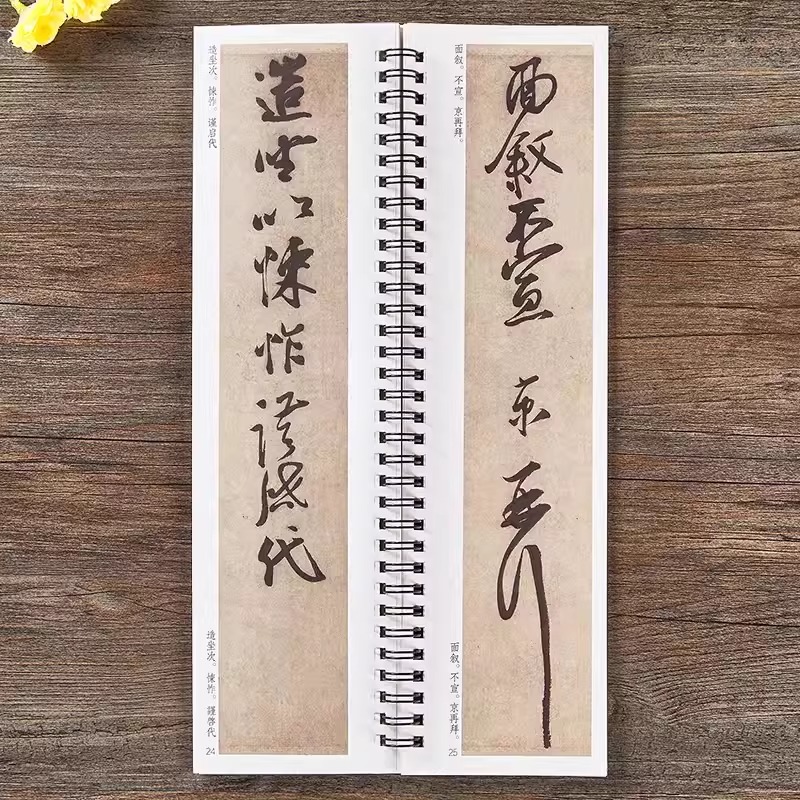 造坐次。悚怍。谨启代
造坐次悚怍謹啓代
造坐次。悚怍。謹啓代
24
面叙。不宣。京再拜。
面叙不宣京再拜
面叙。不宣。京再拜。
25